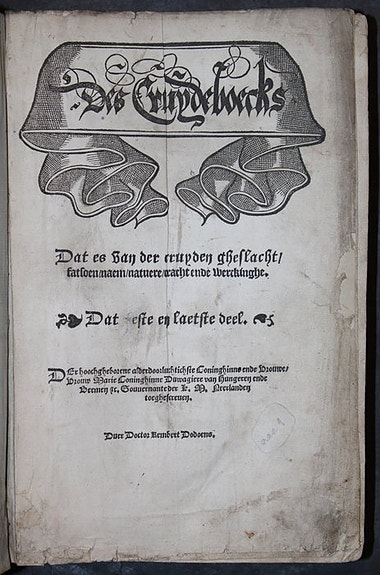 Des Cruydeboecks
Dat es Van der cruyden gheslacht/
fatsoen/naem/natuere/cracht ende werckinghe.
Dat seste en laetste deel.
DEr hoochgheborene alderdoorluchtichste Coninghinne ende Vrouwe/
Vrouw Marie Coninghinne Duwagiere van Hungeren ende
Beemen zc. Gouvernante der k. M. Neerlanden
toeghescreven.
Duer Doctor Rembert Dodoens.